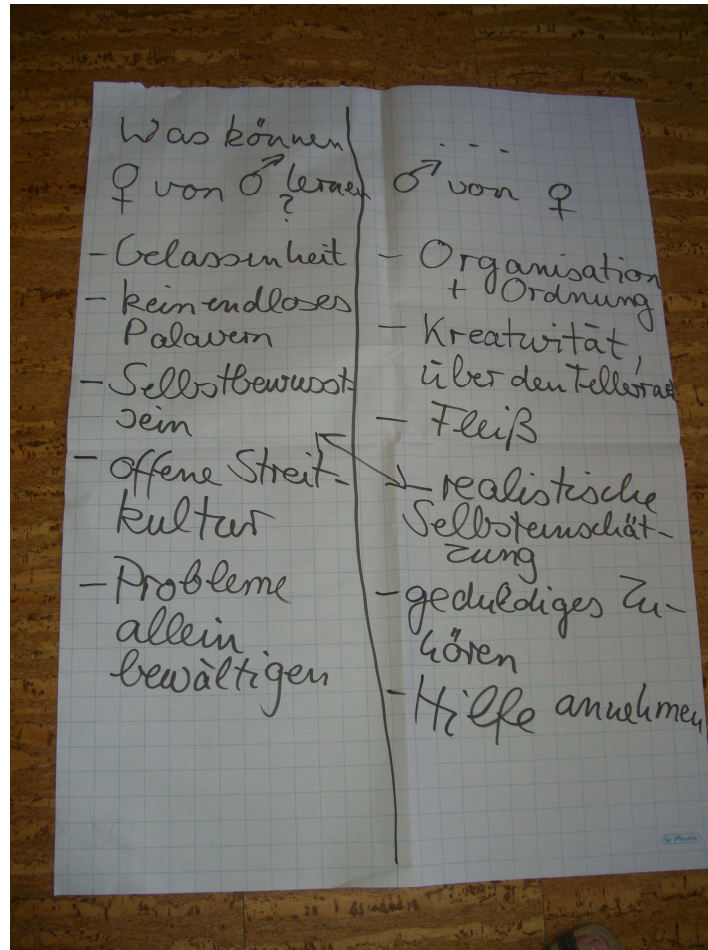 Was können
♀ von ♂ lernen
?
- Gelassenheit
- kein endloses
Palavern
- Selbstbewusst
sein
- offene Streit-
kultur
- Probleme
allein
bewältigen
. . .
♂ von ♀
- Organisation
+ Ordnung
- Kreativität,
über den Tellerrand
- Fleiß
- realistische
Selbsteinschät-
zung
- geduldiges Zu-
hören
- Hilfe annehmen